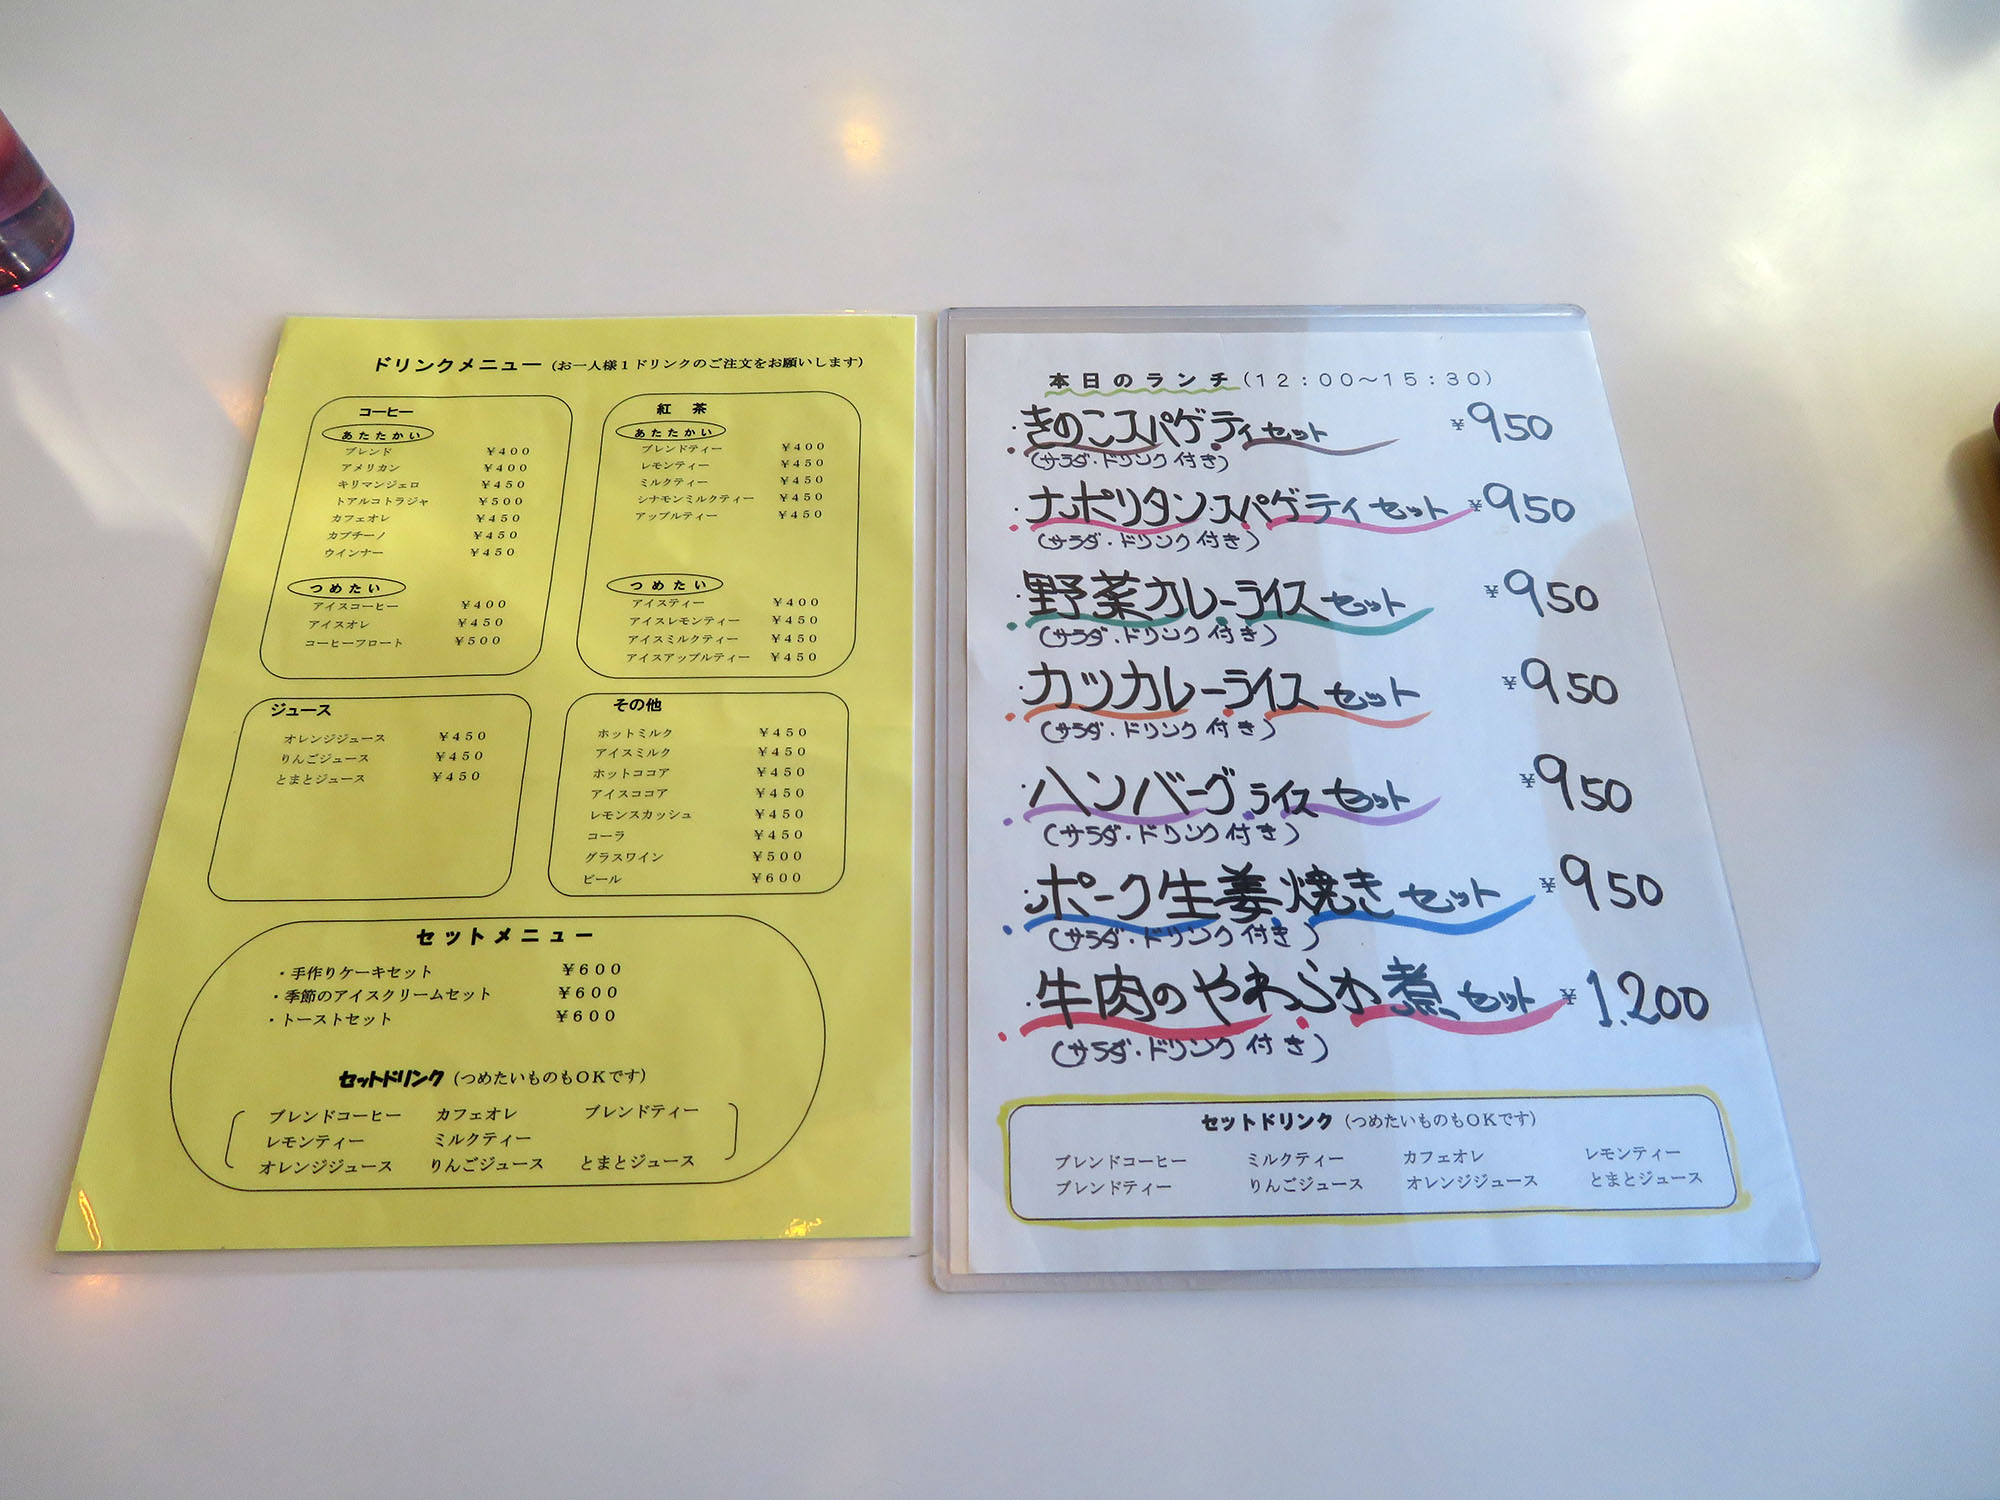 ドリンクメニュー(お一人様1ドリンクのご注文をお願いします)
コーヒー
あたたかい
ブレンド ¥400
アメリカン ¥400
キリマンジェロ ¥450
トアルコトラジャ ¥500
カフェオレ ¥450
カプチーノ ¥450
ウインナー ¥450
つめたい
アイスコーヒー ¥400
アイスオレ ¥450
コーヒーフロート ¥500
紅茶
あたたかい
ブレンドティー ¥400
レモンティー ¥450
ミルクティー ¥450
シナモンミルクティー ¥450
アップルティー ¥450
つめたい
アイスティー ¥400
アイスレモンティー ¥450
アイスミルクティー ¥450
アイスアップルティー ¥450
ジュース
オレンジジュース ¥450
りんごジュース ¥450
とまとジュース ¥450
その他
ホットミルク ¥450
アイスミルク ¥450
ホットココア ¥450
アイスココア ¥450
レモンスカッシュ ¥450
コーラ ¥450
グラスワイン ¥500
ビール ¥600
セットメニュー
・手作りケーキセット ¥600
・季節のアイスクリームセット ¥600
・トーストセット ¥600
セットドリンク(つめたいものもOKです)
ブレンドコーヒー カフェオレ ブレンドティー
レモンティー ミルクティー
オレンジジュース りんごジュース とまとジュース
本日のランチ(12:00～15:30)
・きのこスパゲティセット ¥950
(サラダ・ドリンク付き)
・ナポリタンスパゲティセット ¥950
(サラダ・ドリンク付き)
・野菜カレーライスセット ¥950
(サラダ・ドリンク付き)
・カツカレーライスセット ¥950
(サラダ・ドリンク付き)
・ハンバーグライスセット ¥950
(サラダ・ドリンク付き)
・ポーク生姜焼きセット ¥950
(サラダ・ドリンク付き)
・牛肉のやわらか煮セット ¥1.200
(サラダ・ドリンク付き)
セットドリンク(つめたいものもOKです)
ブレンドコーヒー ミルクティー カフェオレ レモンティー
ブレンドティー りんごジュース オレンジジュース とまとジュース